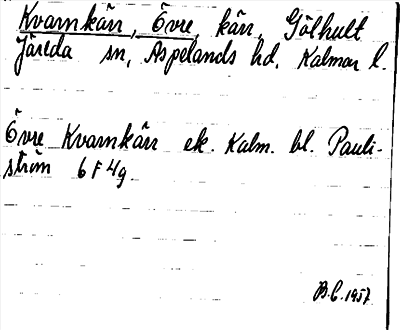 Kvarnkärr, Övre, kärr, Gölhult
Järeda sn, Aspelands hd, Kalmar l.
Övre Kvarnkärr ek. Kalm. bl. Pauli-
ström 6 F 4g
B.C. 1957